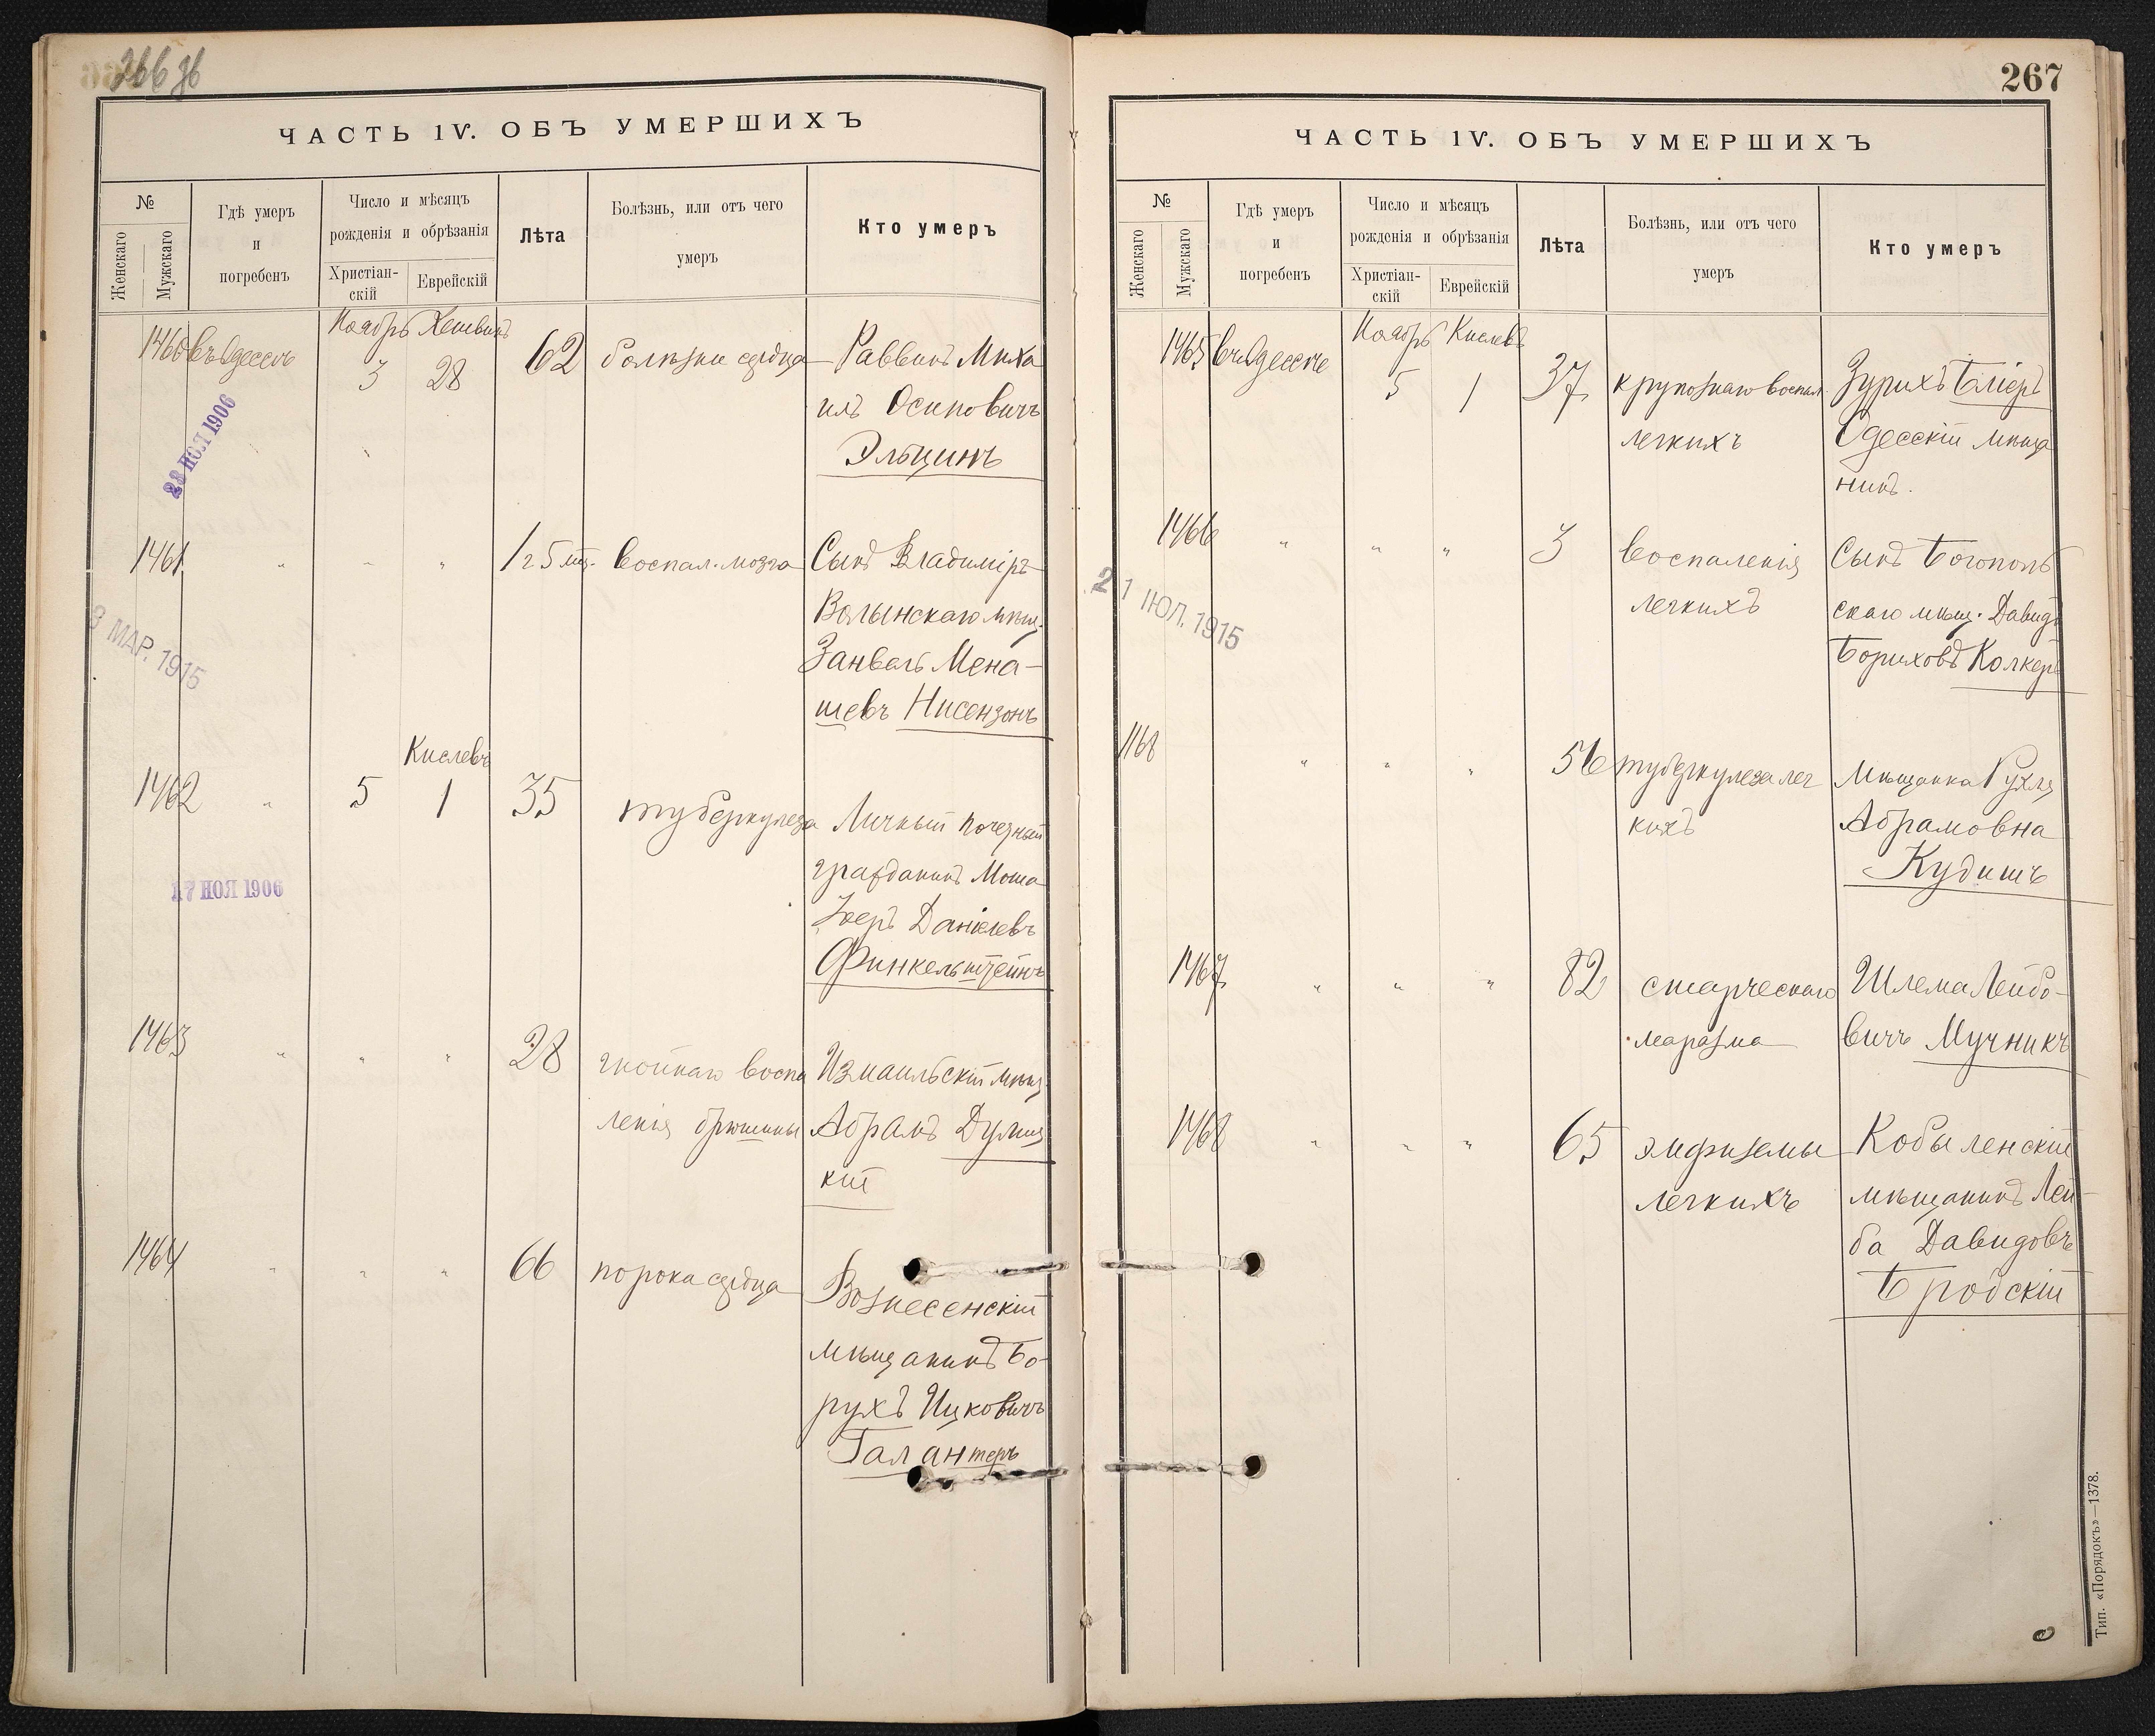 266 об
ЧАСТЬ IV. ОБЪ УМЕРШИХЪ
№
Женскаго
Мужскаго
Гдѣ умеръ
и
погребенъ
Число и мѣсяцъ
рожденія и обрѣзанія
Христіан-
скій
Еврейскій
Лѣта
Болѣзнь, или отъ чего
умеръ
Кто умеръ
Ноябрь Хешвинъ
1460 въ Одессѣ 3 28 62 болѣзни сердца Раввинъ Миха
илъ Осиповичъ
Эльцинъ
28 НОЯ 1906
1461 " " " 1 г 5 мѣс. воспал. мозга Сынъ Владиміръ
Волынскаго мѣщ.
Занвель Мена-
шевъ Нисензонъ
3 МАР. 1915
Кислевъ
1462 " 5 1 35 туберкулеза Личный почезный
гражданинъ Моша
Данiелевъ
Финкельштейнъ
17 НОЯ 1906
1463 " " " 28 гнойнаго воспа Измаильскій мѣщ.
ленія брюшины Абрамъ Дулиц
кій
1464 " " " 66 порока сердца Вознесенскій
мѣщанинъ Бо-
рухъ Ицковичъ
Галантеръ
267
ЧАСТЬ IV. ОБЪ УМЕРШИХЪ
№
Женскаго
Мужскаго
Гдѣ умеръ
и
погребенъ
Число и мѣсяцъ
рожденія и обрѣзанія
Христіан-
скій
Еврейскій
Лѣта
Болѣзнь, или отъ чего
умеръ
Кто умеръ
Ноябрь Кислевъ
1465 въ Одессѣ 5 1 37 крупознаго воспал. Зурихъ
легкихъ Одесскій мѣща
нинъ.
1466 " " " 3 воспаленія Сынъ Богополь
легкихъ скаго мѣщ. Давидъ
Бориховъ Колкеръ
21 ІЮЛ. 1915
1168 " " " 56 туберкулеза лег Мѣщанка Рухля
кихъ Абрамовна
Кудишъ
1467 " " " 82 старческаго Шлема Лейбо-
маразма вичъ Мучникъ
1468 " " " 65 эмфиземы Кобыленскій
легкихъ мѣщанинъ Лей-
ба Давидовъ
Бродскій
Тип. «Порядокъ»—1378.